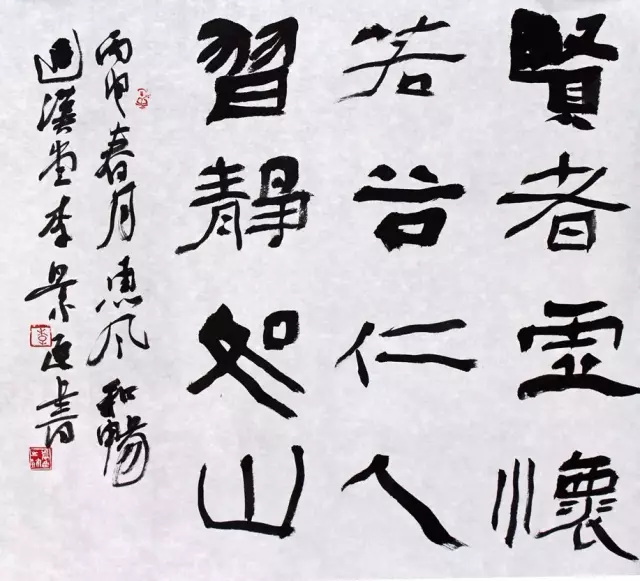 賢者虛懷
若谷仁人
習靜如山
丙申春月惠風和暢
漢堂李景書